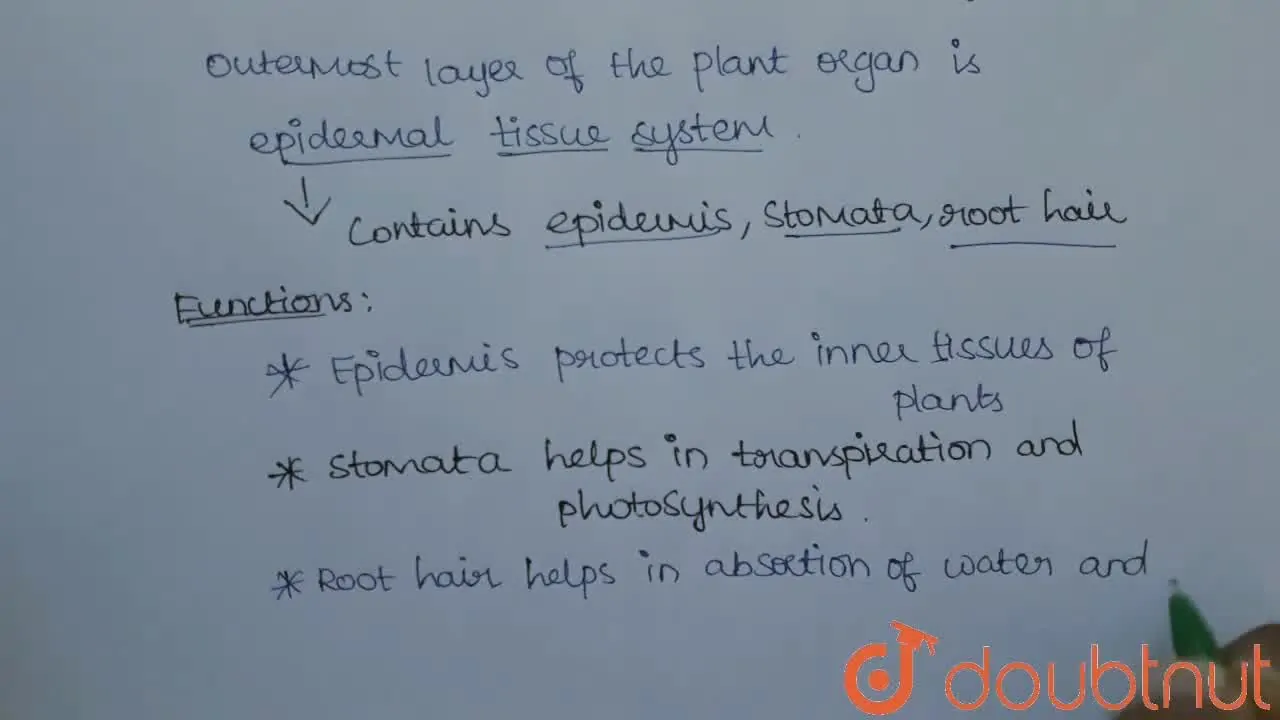 Outermost layer of the plant organ is
epidermal tissue system.
Contains epidermis, stomata, root hair
Functions:
* Epidermis protects the inner tissues of
plants
* Stomata helps in transpiration and
photosynthesis.
* Root hair helps in absortion of water and
doubtnut